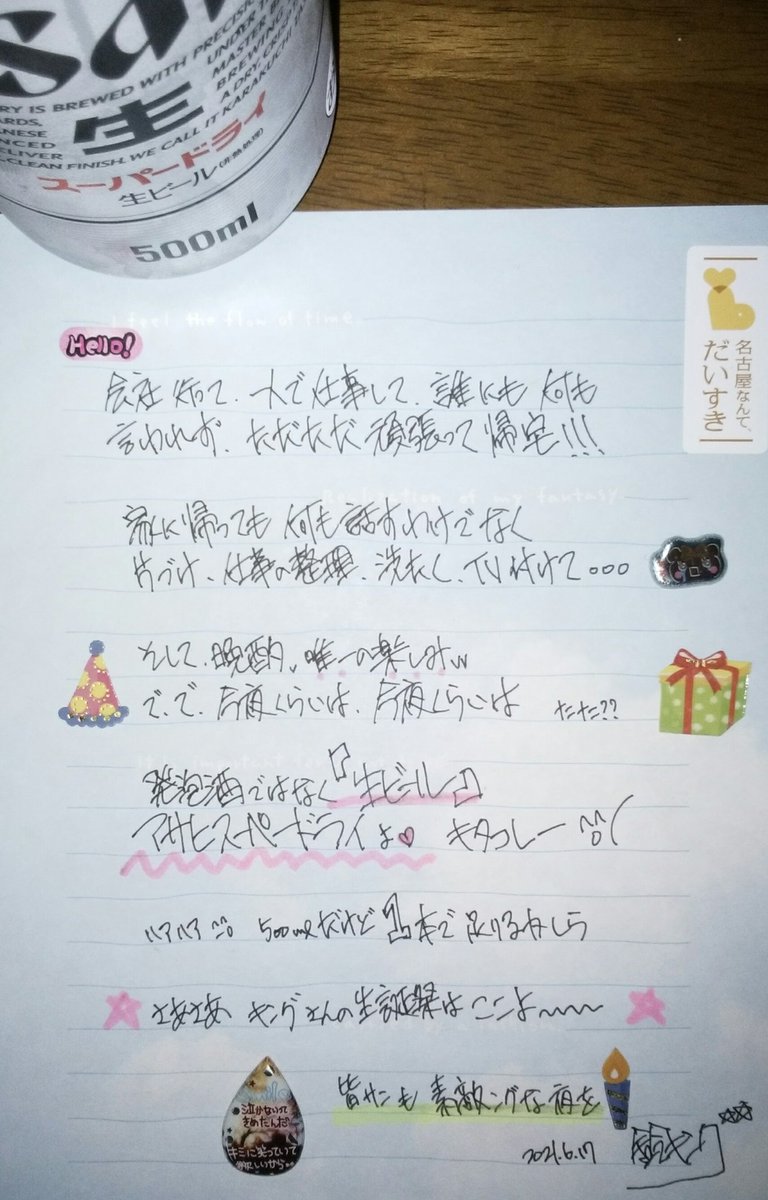 生
スーパードライ
生ビール(非熱処理)
500ml
RY IS BREWED WITH PRECISI
UNDER THE
MASTER
BREW
A DRY, CR
CLEAN FINISH. WE CALL IT KARAKUCHI
I feel the flow of time.
Hello!
名古屋なんて、
だいすき
会社行って、一人で仕事して、誰にも何も
言われず、ただただ頑張って帰宅!!!
Realization of my fantasy
家に帰っても何も話すわけでなく
片づけ、仕事の整理、洗濯し、TV付けて。。。
そして、晩酌。唯一の楽しみw
で、で、今夜くらいは、今夜くらいは
ただ??
発泡酒ではなく『生ビール』
アサヒスーパードライよ♡ キタコレー
ハアハア 500mlだけど1本で足りるかしら
さあさあ キングさんの生誕祭はここよ〜〜〜
皆サンも素敵ングな夜を
2021.6.17
泣かないって
きめたんだ
キミに笑っていて
欲しいから